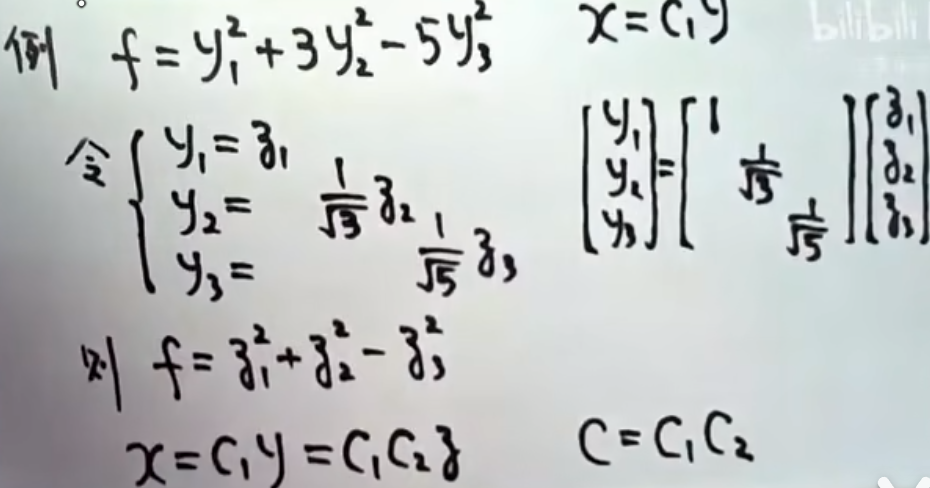 例 f = y₁² + 3y₂² - 5y₃² x = C₁y
bilibili
令 { y₁ = z₁
y₂ = 1/√3 z₂
y₃ = 1/√5 z₃
[y₁ y₂ y₃] = [1 1/√3 1/√5] [z₁ z₂ z₃]
则 f = z₁² + z₂² - z₃²
x = C₁y = C₁C₂z C = C₁C₂